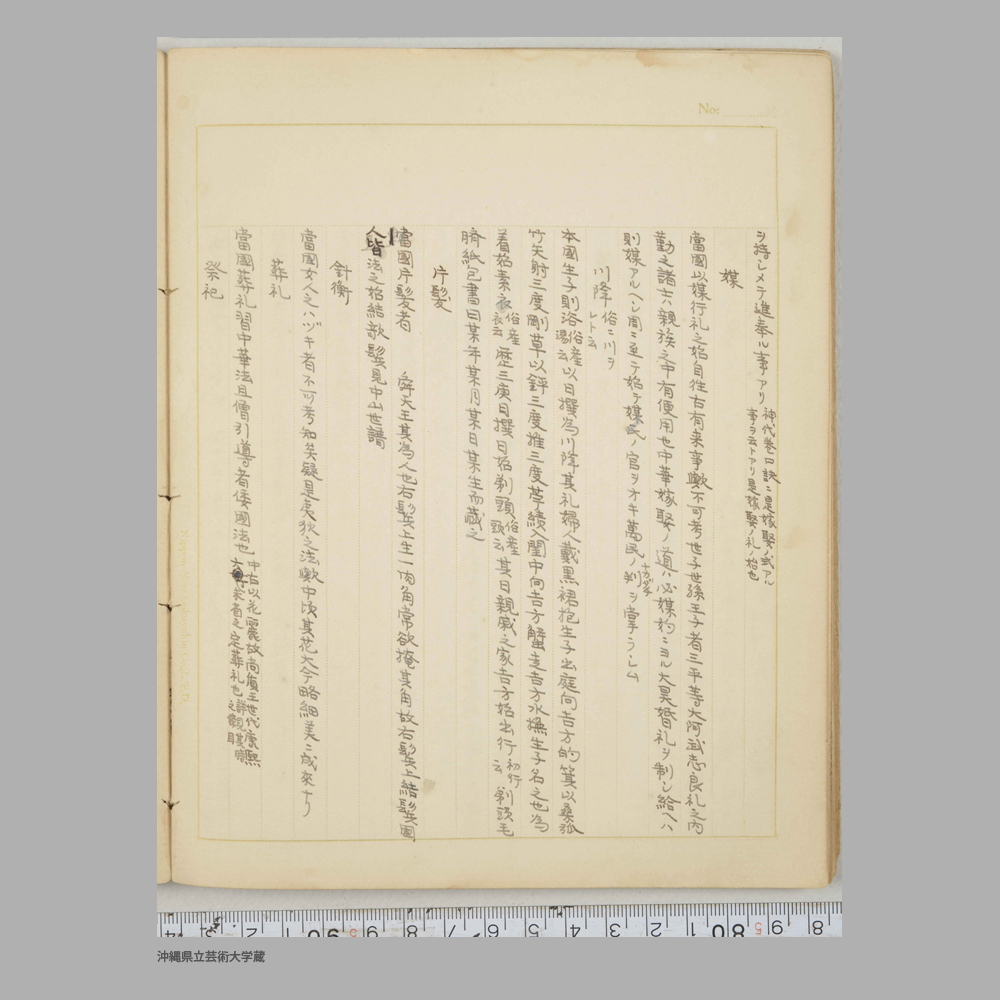 No:
ヲ持シメテ進奉ル事アリ 神代巻口訣ニ是嫁娶ノ式アル
事ヲ云トアリ是嫁娶ノ礼ノ始也
媒
當國以媒行礼之始自往古有来事歟不可考世子世孫王子者三平等大阿武志良礼之内
勤之諸士ハ親族之中有便用也中華嫁娶ノ道ハ必媒妁ニヨル大昊婚礼ヲ制シ給ヘハ
則媒アルヘシ周ニ至テ始テ媒氏ノ官ヲオキ萬民ノ判ヲ掌ラシム
川降 俗ニ川ヲ
レト云
本國生子則浴 俗産
湯云 以日撰為川降其礼婦人戴黒裙抱生子出庭向吉方的箕以桑弧
竹矢射三度剛草以鋅三度推三度苧績入閨中向吉方蟹走吉方水撫生子名之也為
着始素衣 俗産
衣云 歴三庚日撰日始剃頭 俗産
剃云 其日親戚之家吉方始出行 初行
云 剃頭毛
臍紙包書曰某年某月某日某生而蔵之
片髪
當國片髪者 舜天王其為人也右髪上生一肉角常欲掩其角故右髪上結髪國
人皆法之始結欹髪見中山世譜
針衝
當國女人之ハヅキ者不可考知矣疑是夷狄之法歟中頃其花大今略細美ニ成来ナリ
葬礼
當國葬礼習中華法且僧引導者倭國法也 中古以花麗故尚貞王世代康熙
之定葬礼也
祭祀
沖縄県立芸術大学蔵